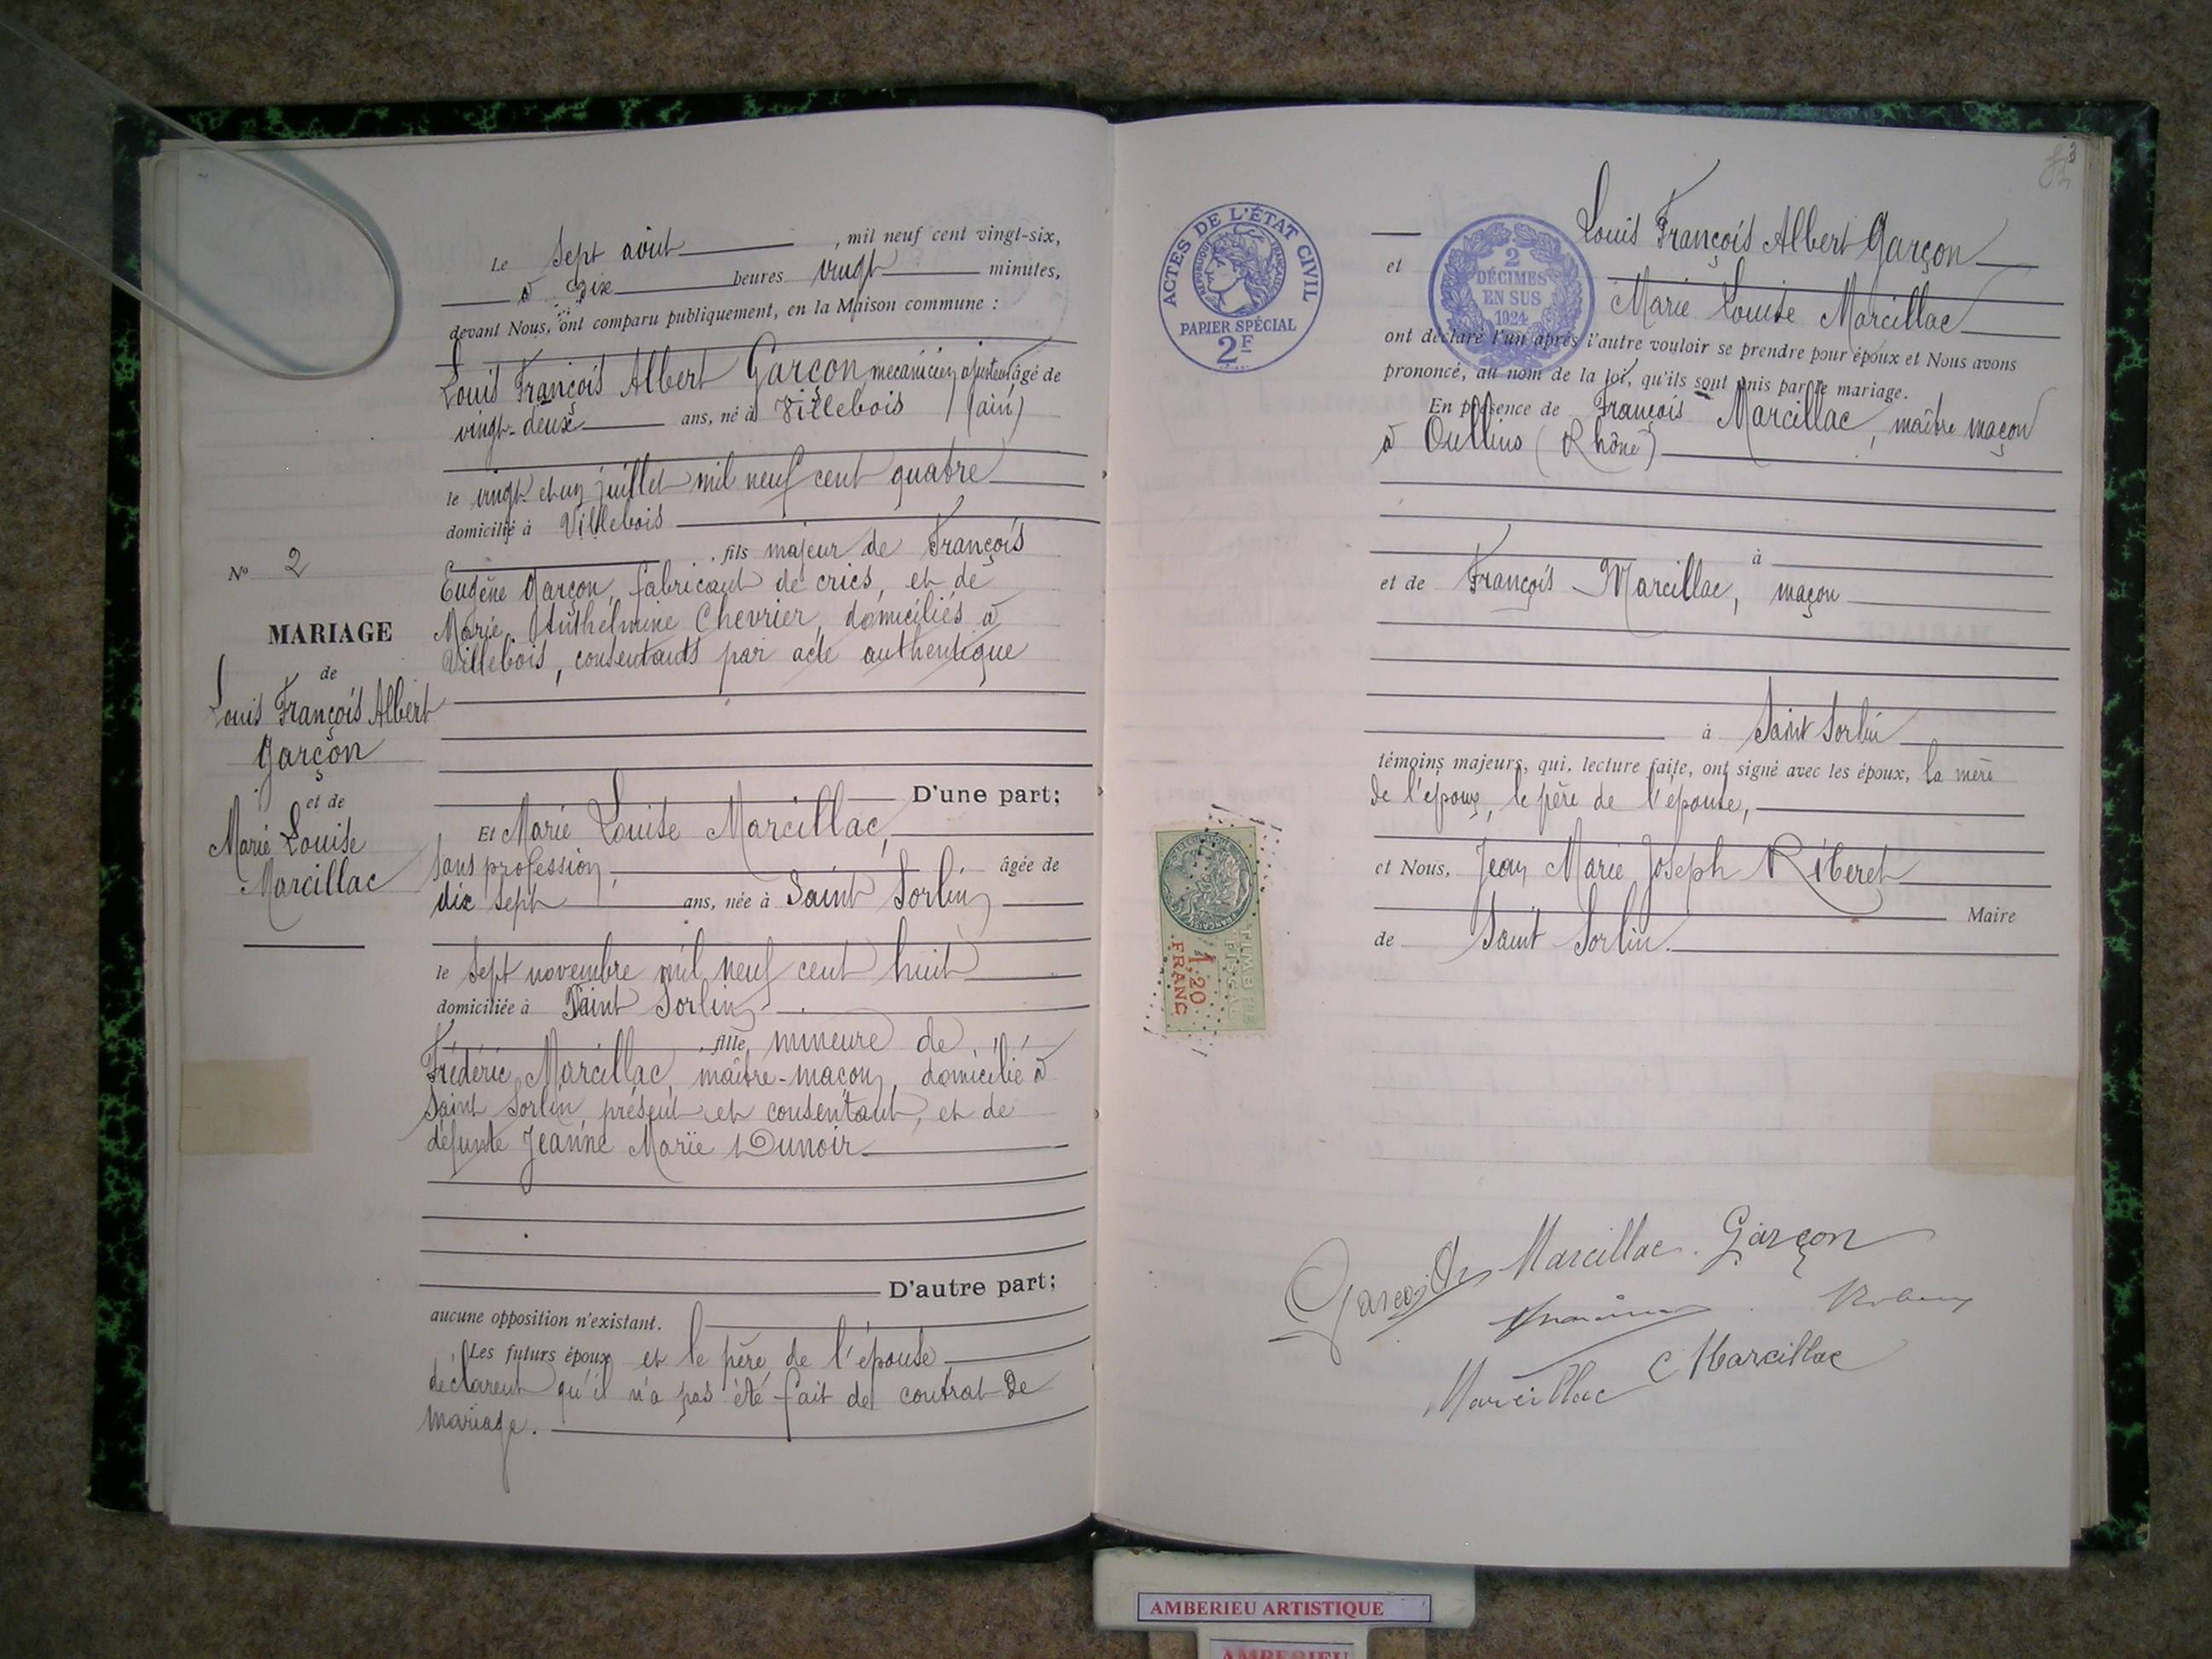 Le sept août , mil neuf cent vingt-six,
à dix heures vingt minutes,
devant Nous, ont comparu publiquement, en la Maison commune :
Louis François Albert Garçon mécanicien ajusteur âgé de
vingt-deux ans, né à Villebois (ain)
le vingt et un juillet mil neuf cent quatre
domicilié à Villebois
, fils majeur de François
Eugène Garçon, fabricant de crics, et de
Marie Anthelmine Chevrier, domiciliés à
Villebois, consentants par acte authentique
N° 2
MARIAGE
de
Louis François Albert
Garçon
et de
Marie Louise
Marcillac
D'une part;
Et Marie Louise Marcillac,
sans profession, âgée de
dix sept ans, née à Saint Sorlin
le sept novembre mil neuf cent huit
domiciliée à Saint Sorlin
, fille mineure de
Frédéric Marcillac, maître-maçon, domicilié à
Saint Sorlin présent et consentant, et de
défunte Jeanne Marie Dunoir
D'autre part;
aucune opposition n'existant.
Les futurs époux et le père de l'épouse
déclarent qu'il n'a pas été fait de contrat de
mariage.
ACTES DE L'ÉTAT CIVIL
RÉPUBLIQUE FRANÇAISE
PAPIER SPÉCIAL
2F
2
DÉCIMES
EN SUS
1924
3
Louis François Albert Garçon
et
Marie Louise Marcillac
ont déclaré l'un après l'autre vouloir se prendre pour époux et Nous avons
prononcé, au nom de la loi, qu'ils sont unis par le mariage.
En présence de François Marcillac, maître maçon
à Oullins (Rhône)
à
et de François Marcillac, maçon
à Saint Sorlin
témoins majeurs, qui, lecture faite, ont signé avec les époux, la mère
de l'époux, le père de l'épouse,
et Nous, Jean Marie Joseph Riberet
Maire
de Saint Sorlin.
TIMBRE
FISCAL
1,20
FRANC
Marcillac Garçon
Marcillac C Marcillac
AMBERIEU ARTISTIQUE
AMBERIEU